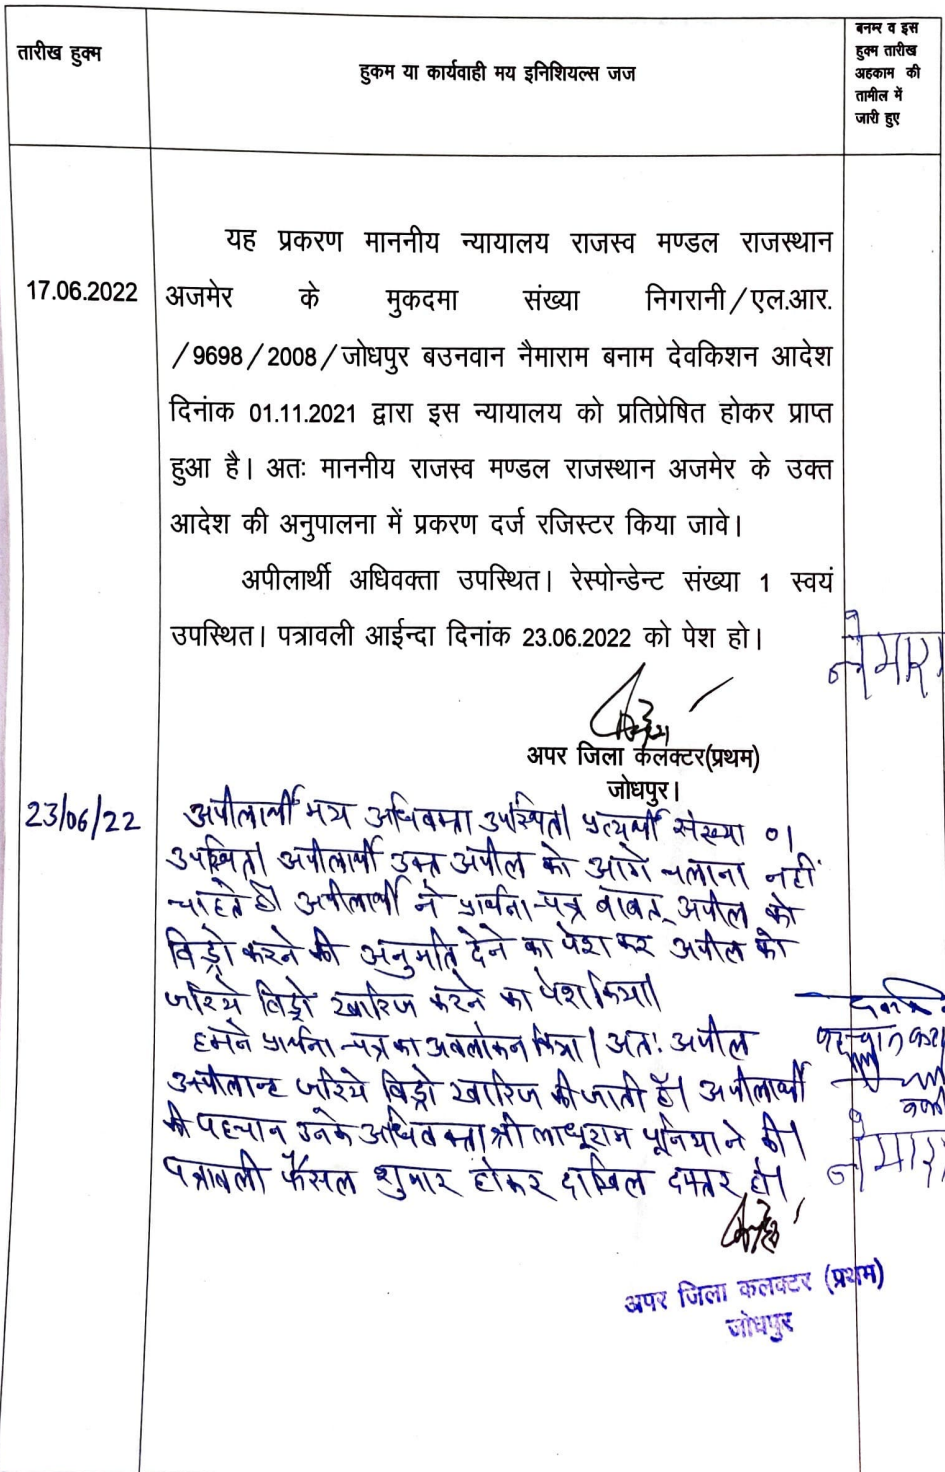 तारीख हुक्म
हुकम या कार्यवाही मय इनिशियल्स जज
बनम्र व इस
हुक्म तारीख
अहकाम की
तामील में
जारी हुए
यह प्रकरण माननीय न्यायालय राजस्व मण्डल राजस्थान
17.06.2022
अजमेर के मुकदमा संख्या निगरानी/एल.आर.
/9698/2008/जोधपुर बउनवान नैमाराम बनाम देवकिशन आदेश
दिनांक 01.11.2021 द्वारा इस न्यायालय को प्रतिप्रेषित होकर प्राप्त
हुआ है। अतः माननीय राजस्व मण्डल राजस्थान अजमेर के उक्त
आदेश की अनुपालना में प्रकरण दर्ज रजिस्टर किया जावे।
अपीलार्थी अधिवक्ता उपस्थित। रेस्पोन्डेन्ट संख्या 1 स्वयं
उपस्थित। पत्रावली आईन्दा दिनांक 23.06.2022 को पेश हो।
नैमारा
अपर जिला कलक्टर(प्रथम)
जोधपुर।
23/06/22
अपीलार्थी मय अधिवक्ता उपस्थित। प्रत्यर्थी संख्या 01
उपस्थित। अपीलार्थी उक्त अपील को आगे चलाना नहीं
चाहते है। अपीलार्थी ने प्रार्थना-पत्र बाबत् अपील को
विड्रो करने की अनुमति देने का पेश कर अपील को
जरिये विड्रो खारिज करने का पेश किया।
हमने प्रार्थना-पत्र का अवलोकन किया। अतः अपील
अपीलान्ट जरिये विड्रो खारिज की जाती है। अपीलार्थी
की पहचान उनके अधिवक्ता श्री लाधूराम पूनिया ने की।
पत्रावली फैसल शुमार होकर दाखिल दफ्तर हो।
नैमारा
अपर जिला कलक्टर (प्रथम)
जोधपुर